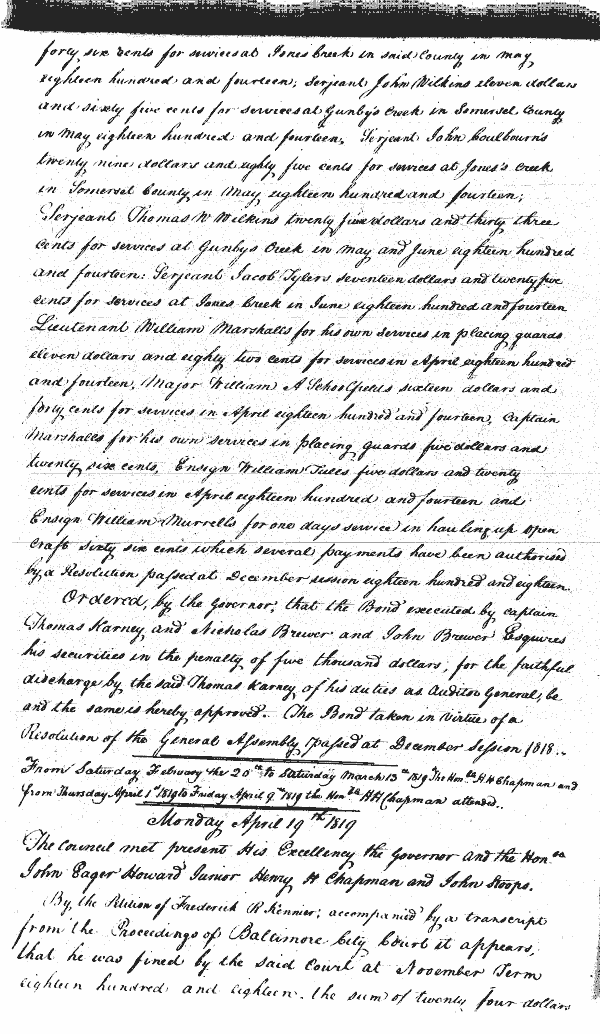 forty six cents for services at Jones Creek in said County in may
eighteen hundred and fourteen; Serjeant John Wilkins eleven dollars
and sixty five cents for services at Gunby's Creek in Somerset County
in May eighteen hundred and fourteen, Serjeant John Coulbourn's
twenty nine dollars and eighty five cents for services at Jones's Creek
in Somerset County in May eighteen hundred and fourteen;
Serjeant Thomas W Wilkins twenty five dollars and thirty three
cents for services at Gunbys Creek in may and June eighteen hundred
and fourteen: Serjeant Jacob Tylers seventeen dollars and twenty five
cents for services at Jones Creek in June eighteen hundred and fourteen
Lieutenant William Marshalls for his own services in placing guards
eleven dollars and eighty two cents for services in April eighteen hundred
and fourteen, Major William A Schoolfields sixteen dollars and
forty cents for services in April eighteen hundred and fourteen, Captain
Marshalls for his own services in placing guards five dollars and
twenty six cents, Ensign William five dollars and twenty
cents for services in April eighteen hundred and fourteen and
Ensign William Murrells for one days service in hauling up open
craft sixty six cents which several payments have been authorised
by a Resolution passed at December session eighteen hundred and eighteen.
Ordered, by the Governor, that the Bond executed by Captain
Thomas Karney and Nicholas Brewer and John Brewer Esquires
his securities in the penalty of five thousand dollars, for the faithful
discharge by the said Thomas Karney of his duties as Auditor General, be
and the same is hereby approved.. The Bond taken in virtue of a
Resolution of the General Assembly passed at December Session 1818..
From Saturday February the 20th to Saturday March 13th 1819 The Honble H H Chapman and
from Thursday April 1st 1819 to Friday April 9th 1819 the Honble H H Chapman attended..
Monday April 19th 1819
The Council met present His Excellency the Governor and the Honble
John Eager Howard Junior Henry H Chapman and John Stoops.
By the Petition of Frederick R Kennier, accompanied by a transcript
from the Proceedings of Baltimore City Court it appears,
that he was fined by the said Court at November Term
eighteen hundred and eighteen. the sum of twenty four dollars